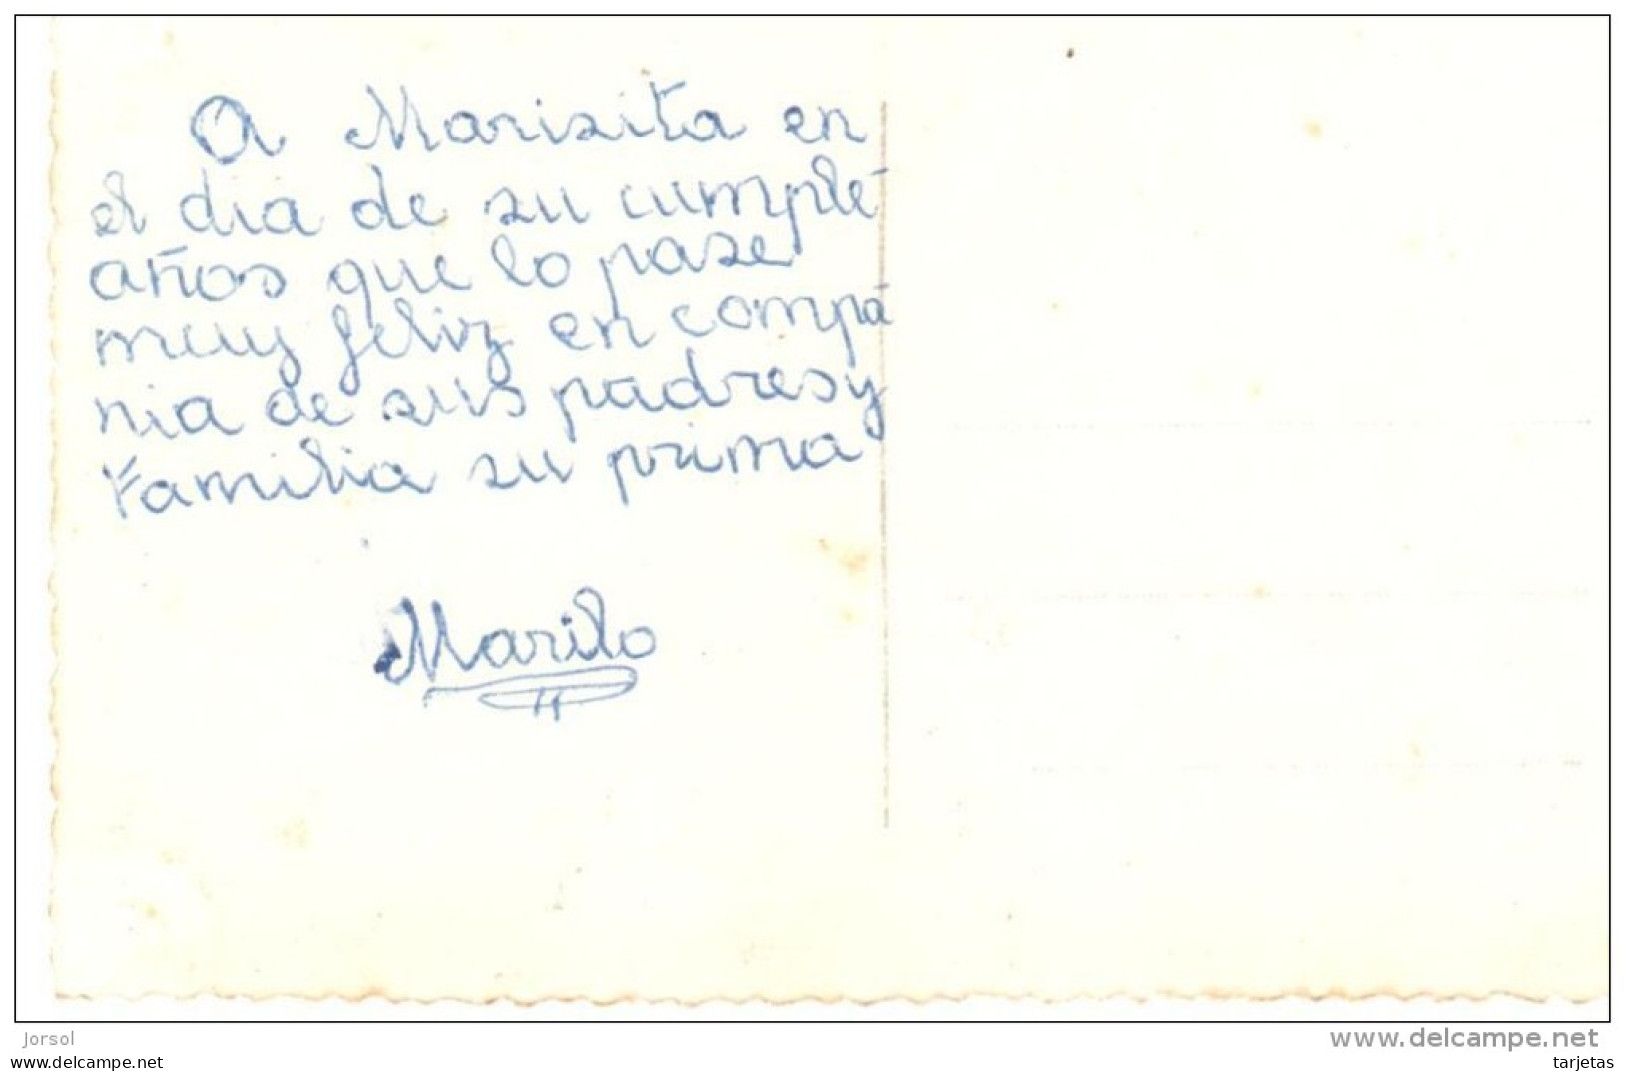 A Marisita en
el dia de su cumple-
años que lo pase
muy feliz en compa
nia de sus padres y
Familia su prima
Marilo
Jorsol
www.delcampe.net
www.delcampe.net
tarjetas